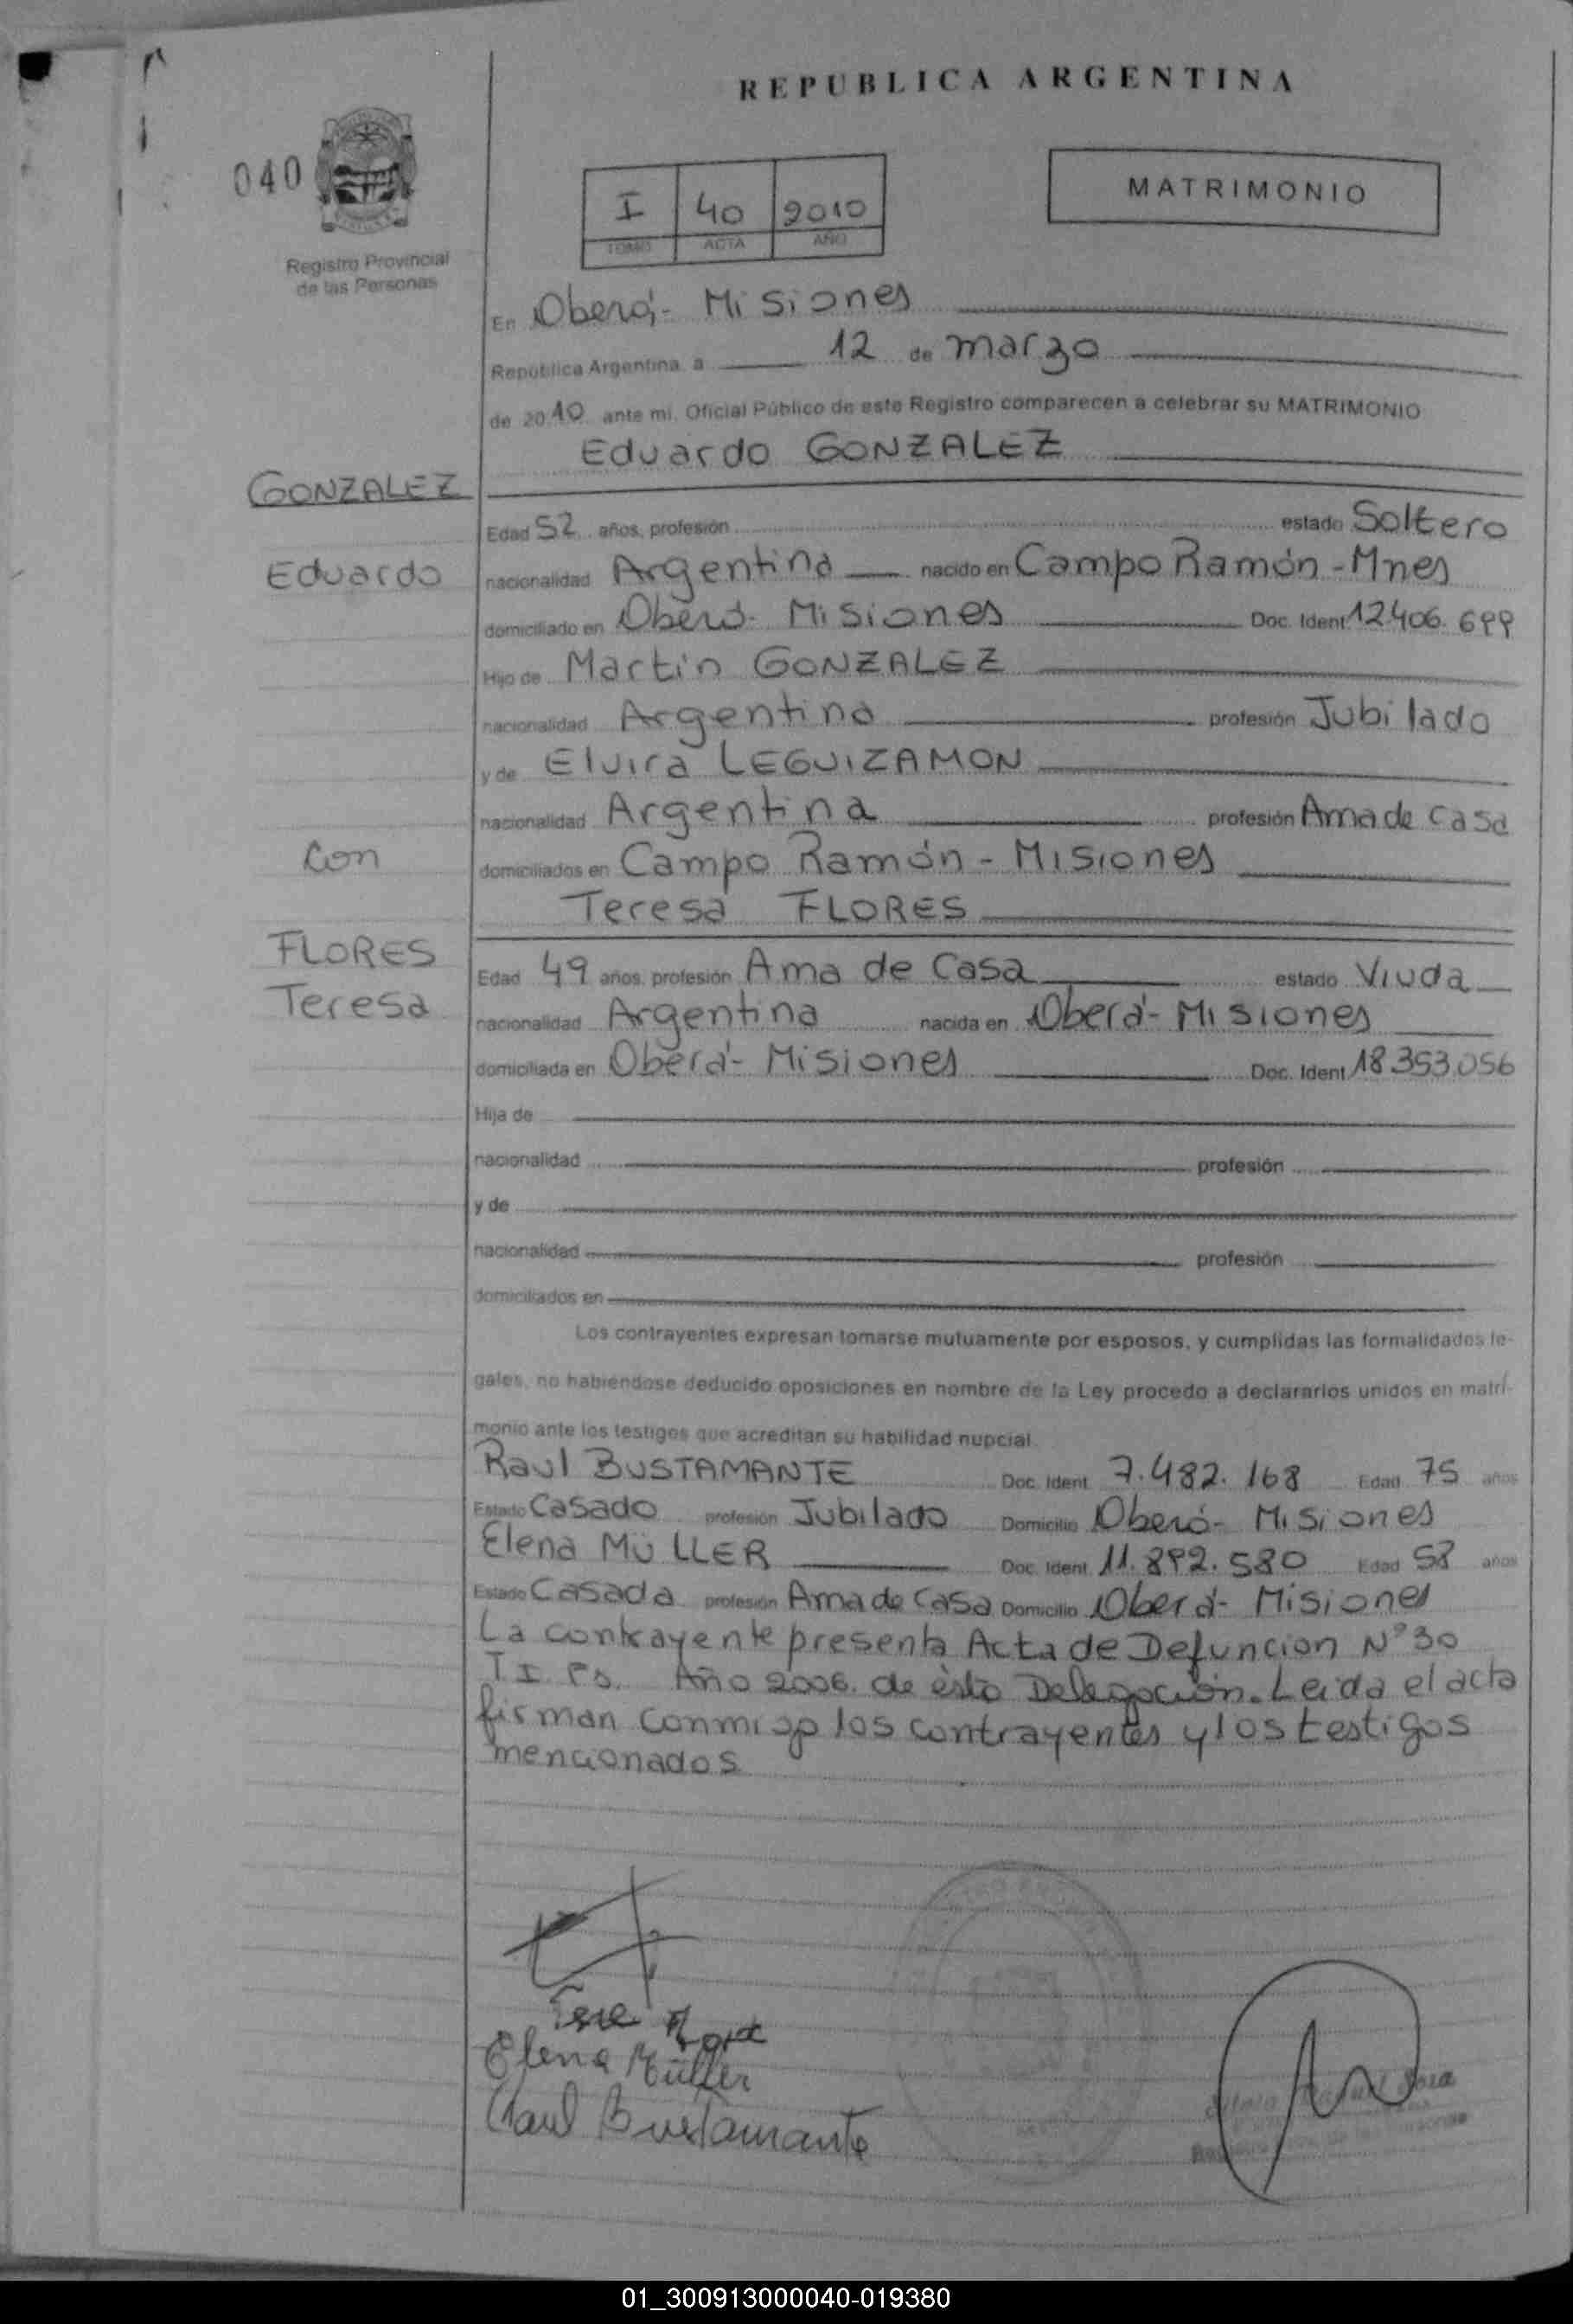 REPUBLICA ARGENTINA
040
I 40 2010
TOMO ACTA AÑO
MATRIMONIO
Registro Provincial
de las Personas
En Oberá - Misiones
República Argentina, a 12 de marzo
de 2010 ante mi, Oficial Público de este Registro comparecen a celebrar su MATRIMONIO
Eduardo GONZALEZ
GONZALEZ
Edad 52 años, profesión estado Soltero
Eduardo
nacionalidad Argentina nacido en Campo Ramón - Mnes
domiciliado en Oberá - Misiones Doc. Ident 12.406.699
Hijo de Martin GONZALEZ
nacionalidad Argentina profesión Jubilado
y de Elvira LEGUIZAMON
nacionalidad Argentina profesión Ama de Casa
Con
domiciliados en Campo Ramón - Misiones
Teresa FLORES
FLORES
Edad 49 años, profesión Ama de Casa estado Viuda
Teresa
nacionalidad Argentina nacida en Oberá - Misiones
domiciliada en Oberá - Misiones Doc. Ident 18.353.056
Hija de
nacionalidad profesión
y de
nacionalidad profesión
domiciliados en
Los contrayentes expresan tomarse mutuamente por esposos, y cumplidas las formalidades le-
gales, no habiéndose deducido oposiciones en nombre de la Ley procedo a declararlos unidos en matri-
monio ante los testigos que acreditan su habilidad nupcial.
Raul BUSTAMANTE Doc. Ident. 7.482.168 Edad 75 años
Estado Casado profesión Jubilado Domicilio Oberá - Misiones
Elena MÜLLER Doc. Ident. 11.892.580 Edad 58 años
Estado Casada profesión Ama de Casa Domicilio Oberá - Misiones
La contrayente presenta Acta de Defuncion N° 30
T. I. Año 2006. de ésta Delegación. Leida el acta
firman conmigo los contrayentes y los testigos
mencionados
Elena Müller
Raul Bustamante
01_300913000040-019380